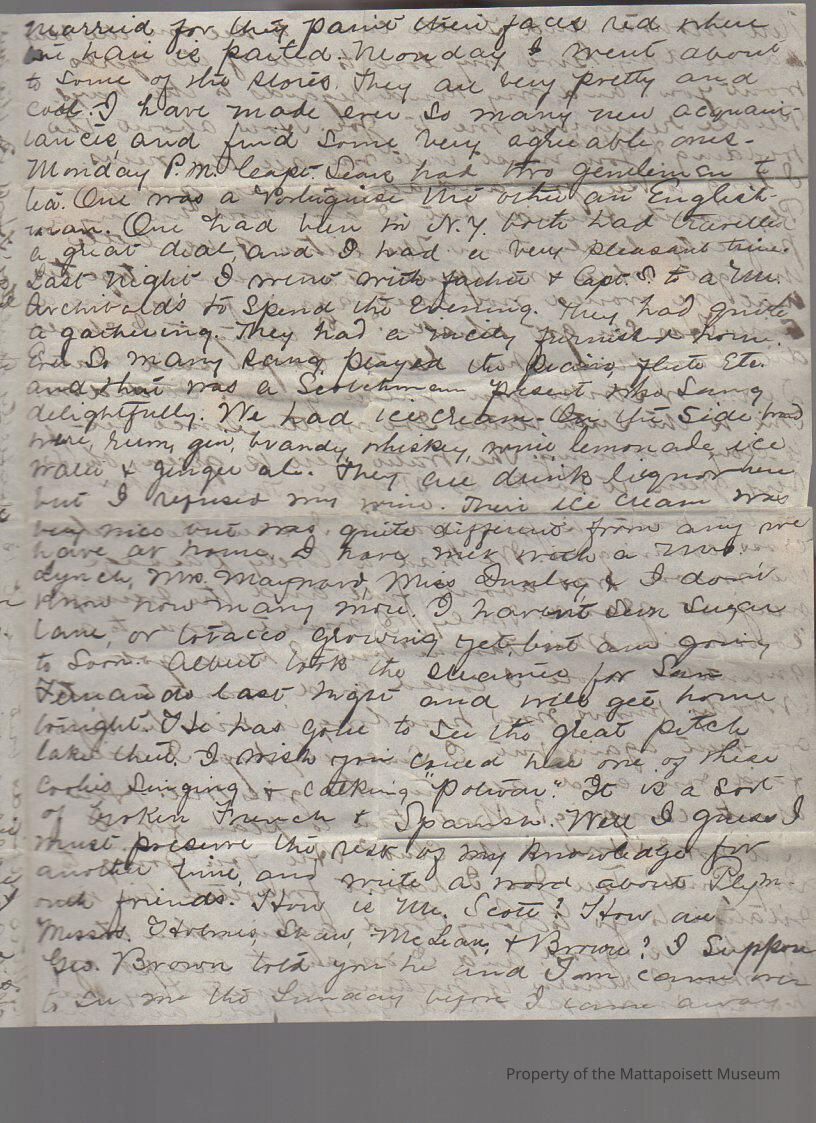 married for they paint their faces red where
the hair is parted. Monday I went about
to some of the stores. They are very pretty and
cool. I have made ever so many new acquain-
tances, and find some very agreeable ones.
Monday P.M. Capt. Sears had two gentlemen to
tea. One was a Portuguise the other an English-
man. One had been in N.Y. both had travelled
a great deal, and I had a very pleasant time.
Last night I went with father & Capt. S. to a Mr.
Archibalds to spend the evening. They had quite
a gathering. They had a nicely furnished home.
Ever so many sang, played the piano, flute Etc.
and there was a Scotchman present who sang
delightfully. We had ice cream. On the side board
were, rum, gin, brandy, whiskey, wine lemonade, ice
water & ginger ale. They all drink liquor here
but I refused my wine. Their ice cream was
very nice but was quite different from any we
have at home. I have met with a Mrs.
Lynch, Mrs. Maynard, Miss & I don't
know how many more. I haven't seen sugar
cane, or tobacco growing yet, but am going
to soon. Albert took the steamer for San
Fernando last night and will get home
tonight. He has gone to see the great pitch
lake there. I wish you could hear one of these
coolies singing & talking It is a sort
of broken French & Spanish. Well I guess I
must preserve the rest of my knowledge for
another time, and write a word about Plym-
outh friends. How is Mr. Scott? How are
Messrs. Holmes, Shaw, McLean, & Brown? I suppose
Geo. Brown told you he and came over
to see me the Sunday before I came away.
Property of the Mattapoisett Museum